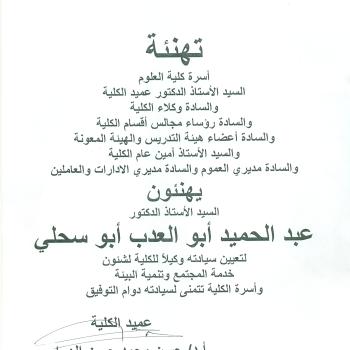 تهنئة
أسرة كلية العلوم
السيد الأستاذ الدكتور عميد الكلية
والسادة وكلاء الكلية
والسادة رؤساء مجالس أقسام الكلية
والسادة أعضاء هيئة التدريس والهيئة المعونة
والسيد الأستاذ أمين عام الكلية
والسادة مديري العموم والسادة مديري الادارات والعاملين
يهنئون
السيد الأستاذ الدكتور
عبد الحميد أبو العدب أبو سحلي
لتعيين سيادته وكيلاً للكلية لشئون
خدمة المجتمع وتنمية البيئة
وأسرة الكلية تتمنى لسيادته دوام التوفيق
عميد الكلية